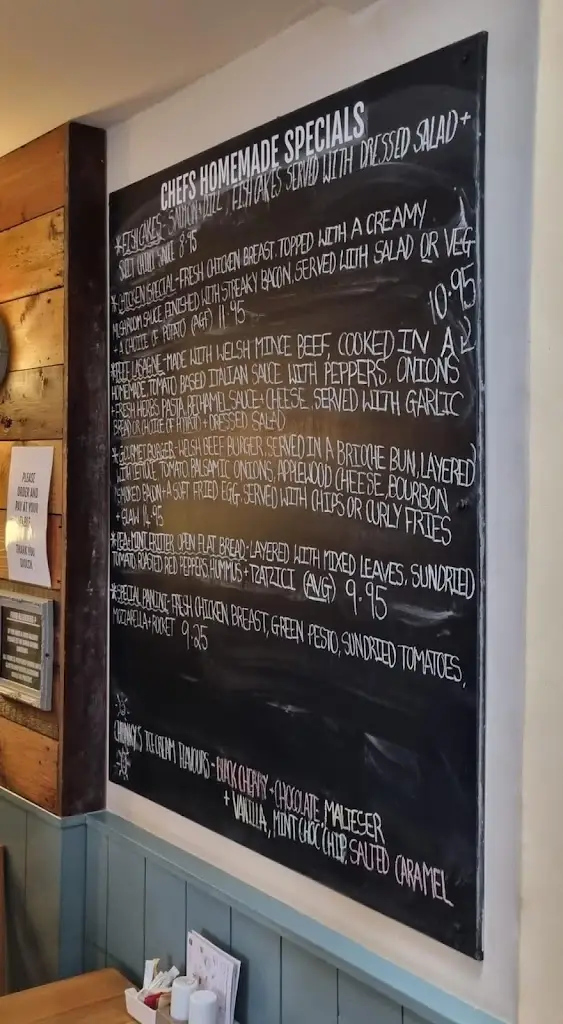 CHEFS HOMEMADE SPECIALS
*FISHCAKES - SALMON + DILL FISHCAKES SERVED WITH DRESSED SALAD +
8.95
*CHICKEN SPECIAL - FRESH CHICKEN BREAST, TOPPED WITH A CREAMY
MUSHROOM SAUCE FINISHED WITH STREAKY BACON, SERVED WITH SALAD OR VEG
+ A CHOICE OF POTATO (AGF) 11.95
10.95
*BEEF LASAGNE - MADE WITH WELSH MINCE BEEF, COOKED IN A
HOMEMADE TOMATO BASED ITALIAN SAUCE WITH PEPPERS, ONIONS
+ FRESH HERBS PASTA, BECHAMEL SAUCE + CHEESE, SERVED WITH GARLIC
BREAD OR CHOICE OF POTATO + DRESSED SALAD
*GOURMET BURGER - WELSH BEEF BURGER, SERVED IN A BRIOCHE BUN, LAYERED
WITH LETTUCE, TOMATO BALSAMIC ONIONS, APPLEWOOD CHEESE, BOURBON
SMOKED BACON + A SOFT FRIED EGG, SERVED WITH CHIPS OR CURLY FRIES
+ SLAW 14.95
*PEA + MINT FRITTER OPEN FLAT BREAD - LAYERED WITH MIXED LEAVES, SUNDRIED
TOMATO, ROASTED RED PEPPERS, HUMMUS + TZATZICI (AVG) 9.95
*SPECIAL PANINI - FRESH CHICKEN BREAST, GREEN PESTO, SUNDRIED TOMATOES,
MOZZARELLA + ROCKET 9.25
CHUNKY'S ICE CREAM FLAVOURS - BLACK CHERRY - CHOCOLATE, MALTESER
+ VANILLA, MINT CHOC CHIP, SALTED CARAMEL
PLEASE
ORDER AND
PAY AT YOUR
THANK YOU